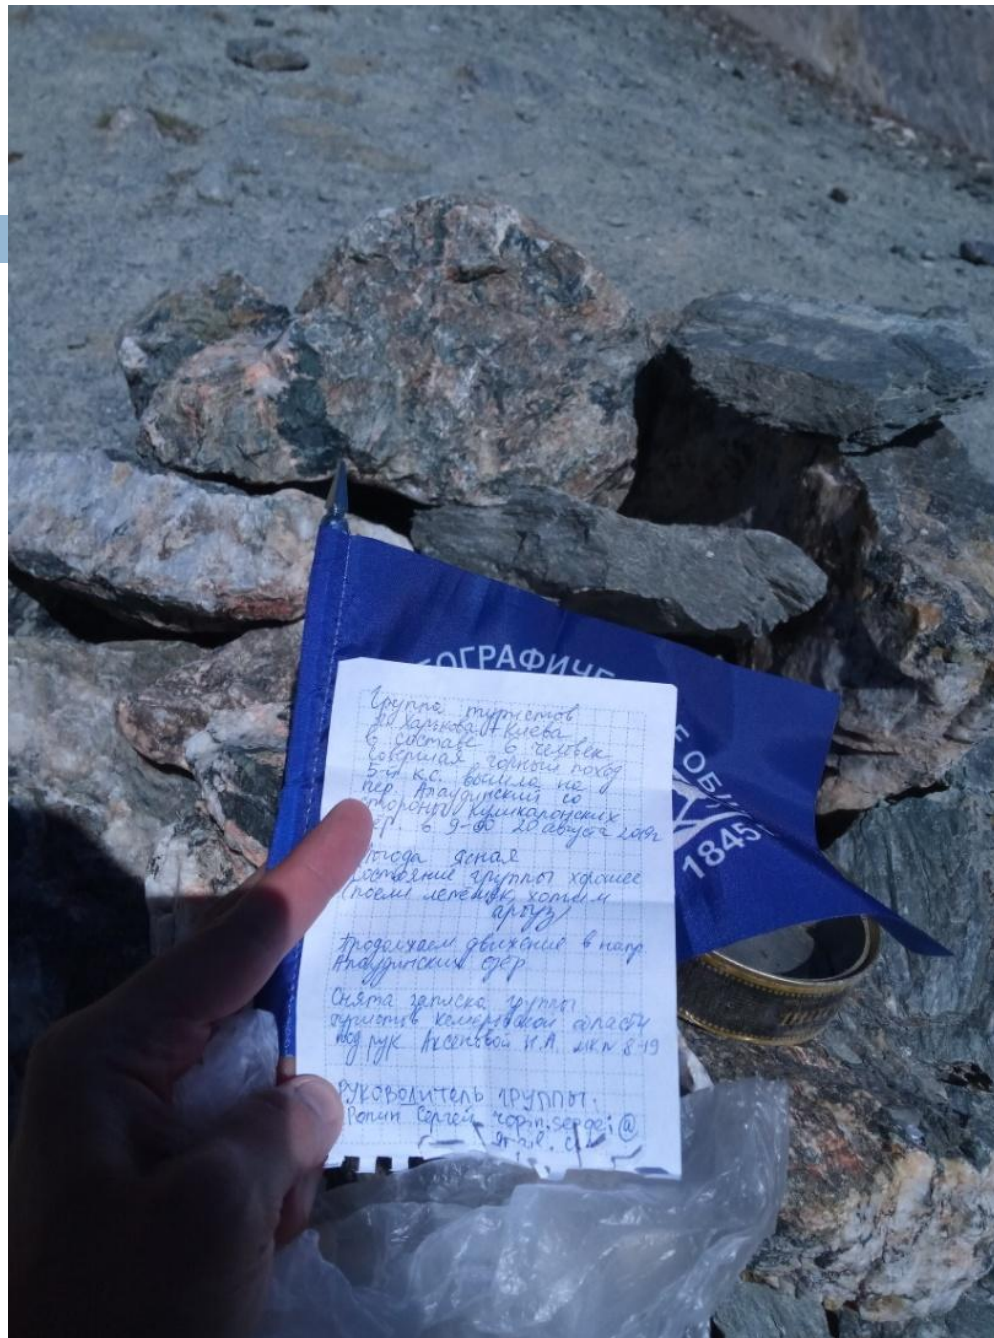 ЕОГРАФИЧЕ
Е ОБЩ
1845
Группа туристов
из Харькова + Киева
в составе 6 человек
совершая горный поход
5-й к.с. вышла на
пер. Алаудинский со
стороны куликалонских
9-00 20 августа 2019г
Погода ясная
Состояние группы хорошее
(поели лепёшек, хотим
арбуз)
Продолжаем движение в напр.
Алаудинских озёр
Снята записка группы
туристов кемеровской области
под рук. Аксеновой Н.А. МКК 8-19
РУКОВОДИТЕЛЬ ГРУППЫ.
Ропин Сергей ropin.sergei@